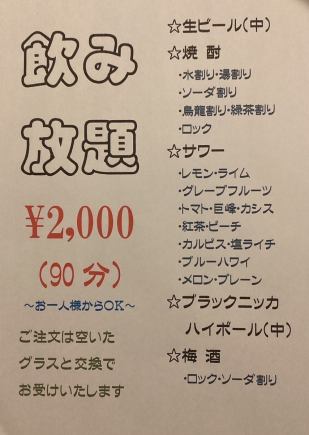 飲み
放題
¥2,000
(90分)
～お一人様からOK～
ご注文は空いた
グラスと交換で
お受けいたします
☆生ビール(中)
☆焼酎
・水割り・湯割り
・ソーダ割り
・烏龍割り・緑茶割り
・ロック
☆サワー
・レモン・ライム
・グレープフルーツ
・トマト・巨峰・カシス
・紅茶・ピーチ
・カルピス・塩ライチ
・ブルーハワイ
・メロン・プレーン
☆ブラックニッカ
ハイボール(中)
☆梅酒
・ロック・ソーダ割り